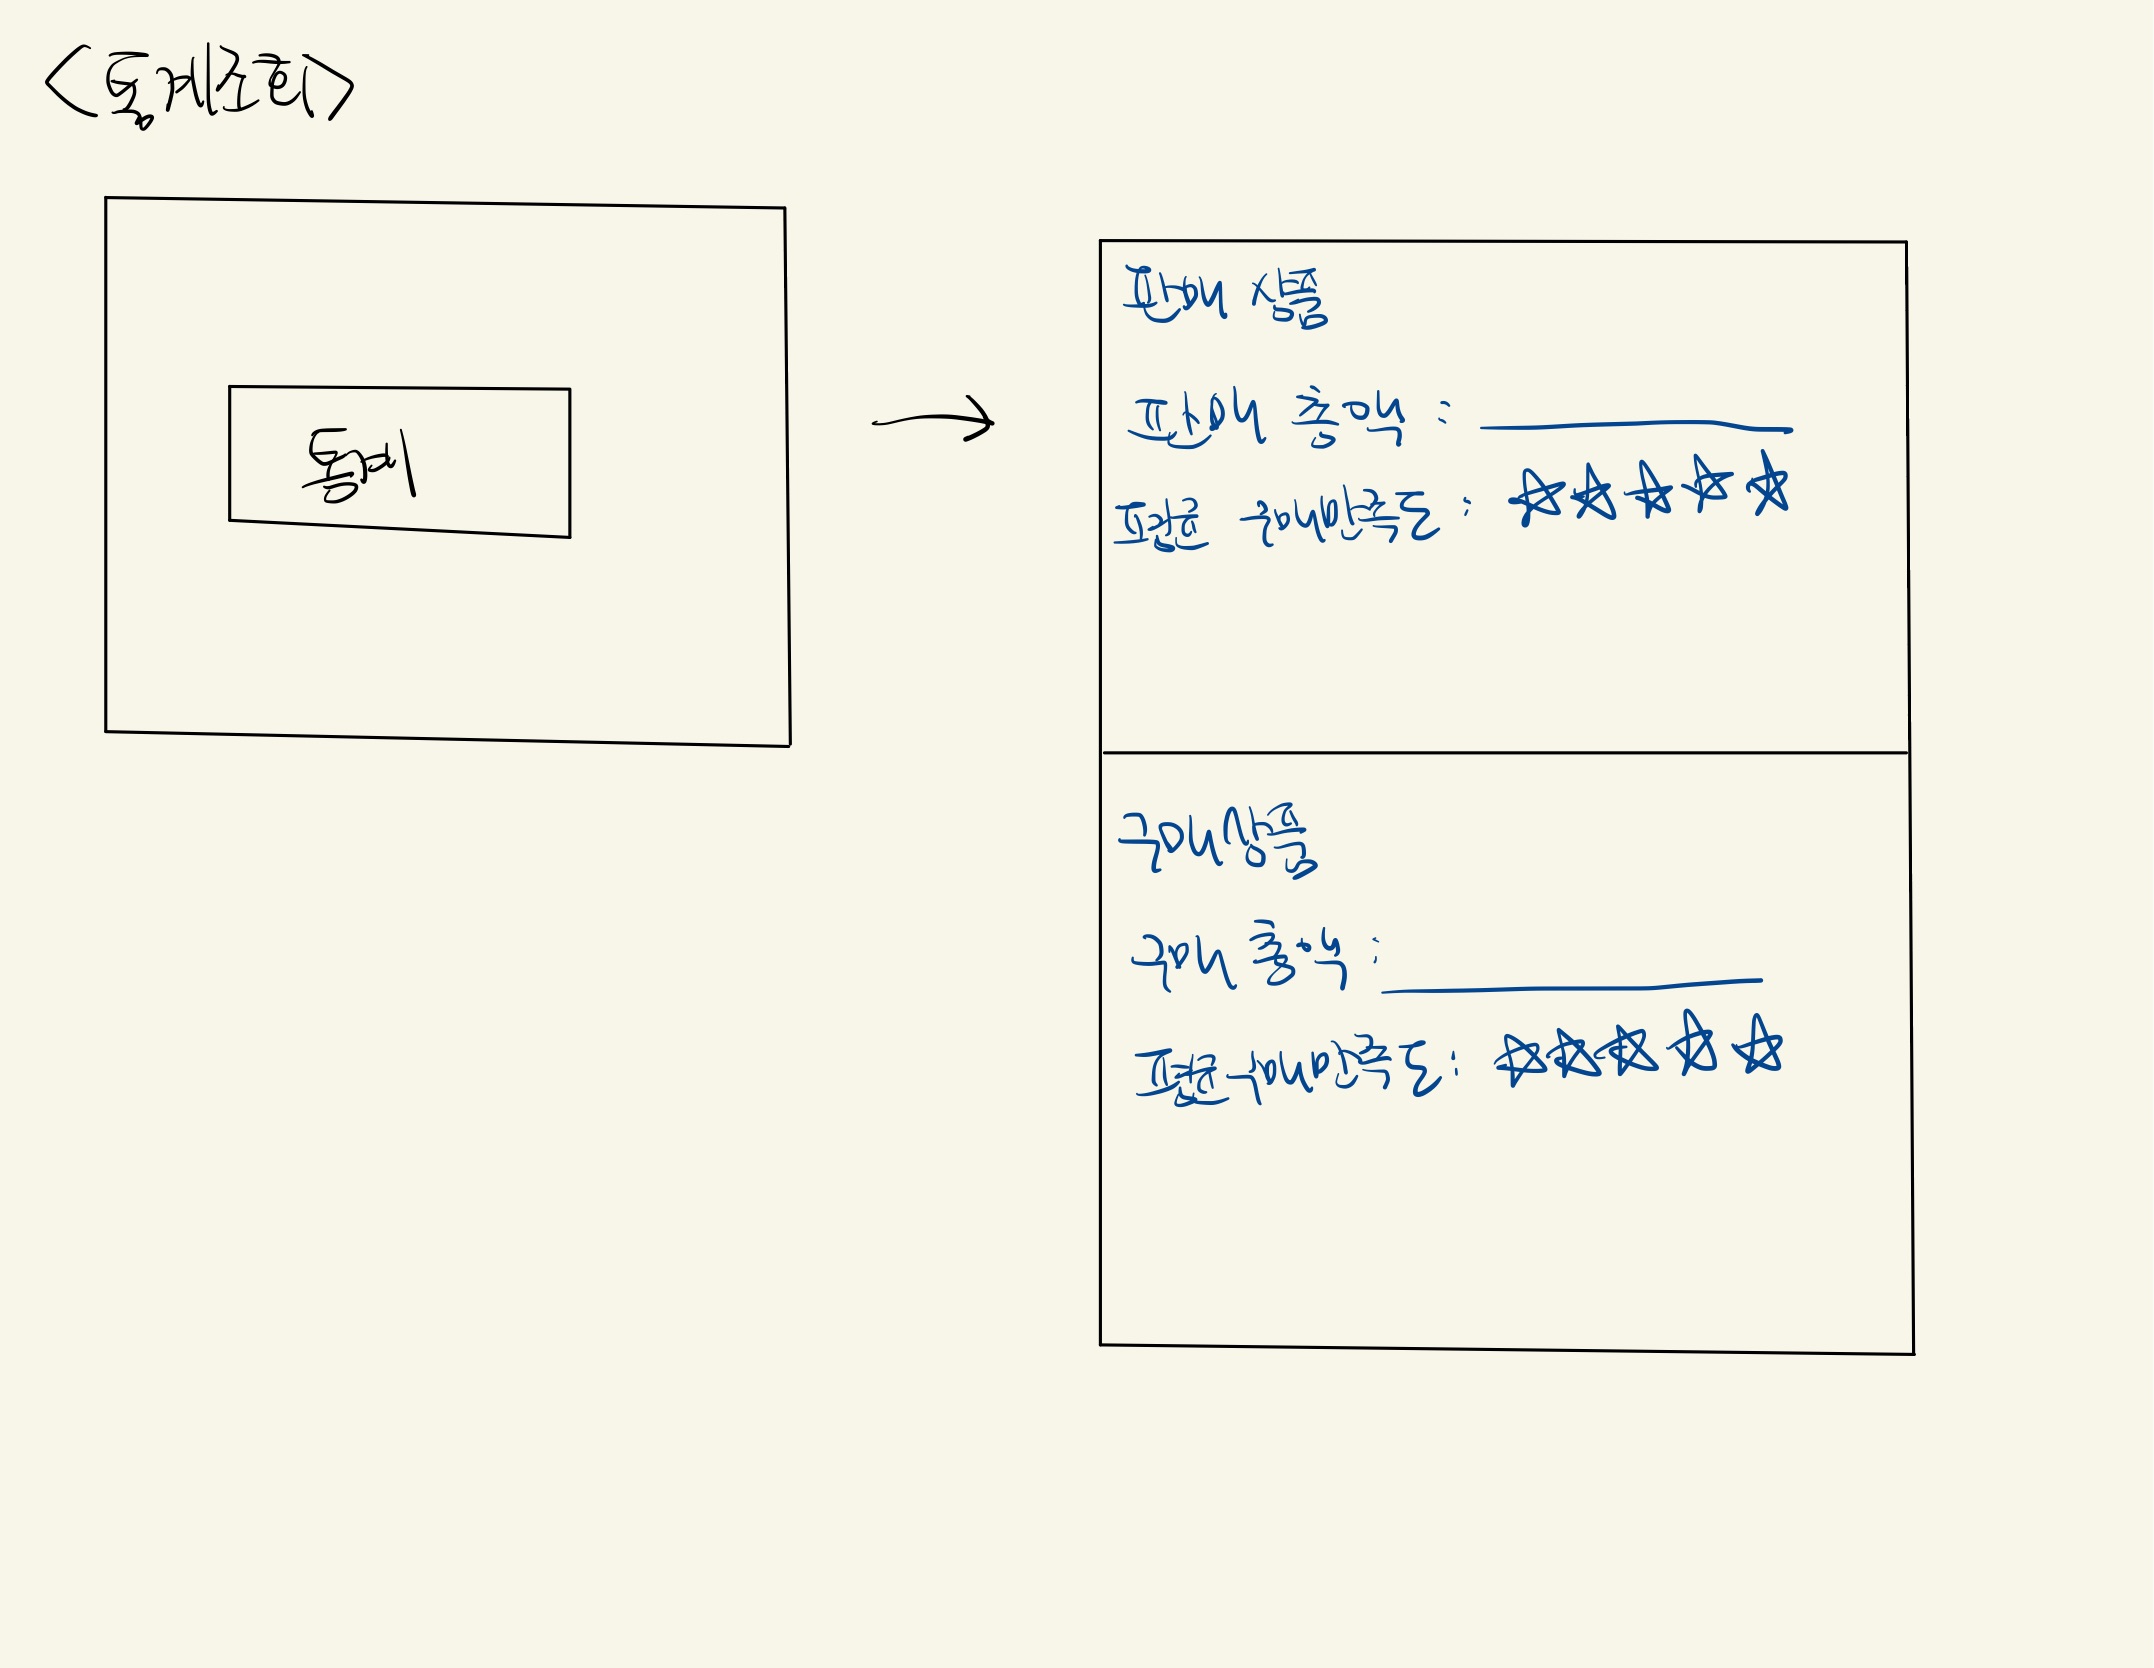 <통계조회>
통계
판매 상품
판매 총액 :
평균 구매만족도 : ☆☆☆☆☆
구매상품
구매 총액 :
평균구매만족도 : ☆☆☆☆☆